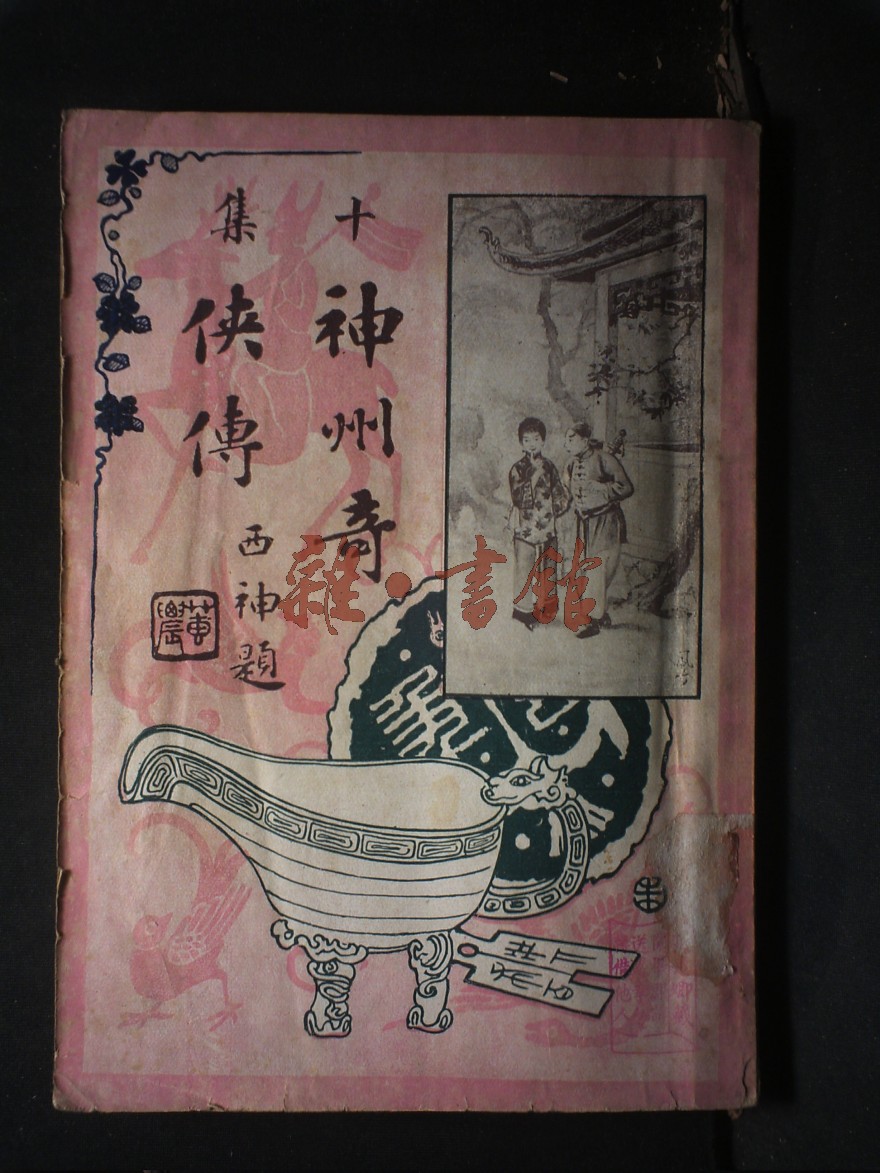 十集
神州奇
俠傳
西神題
雜·書館